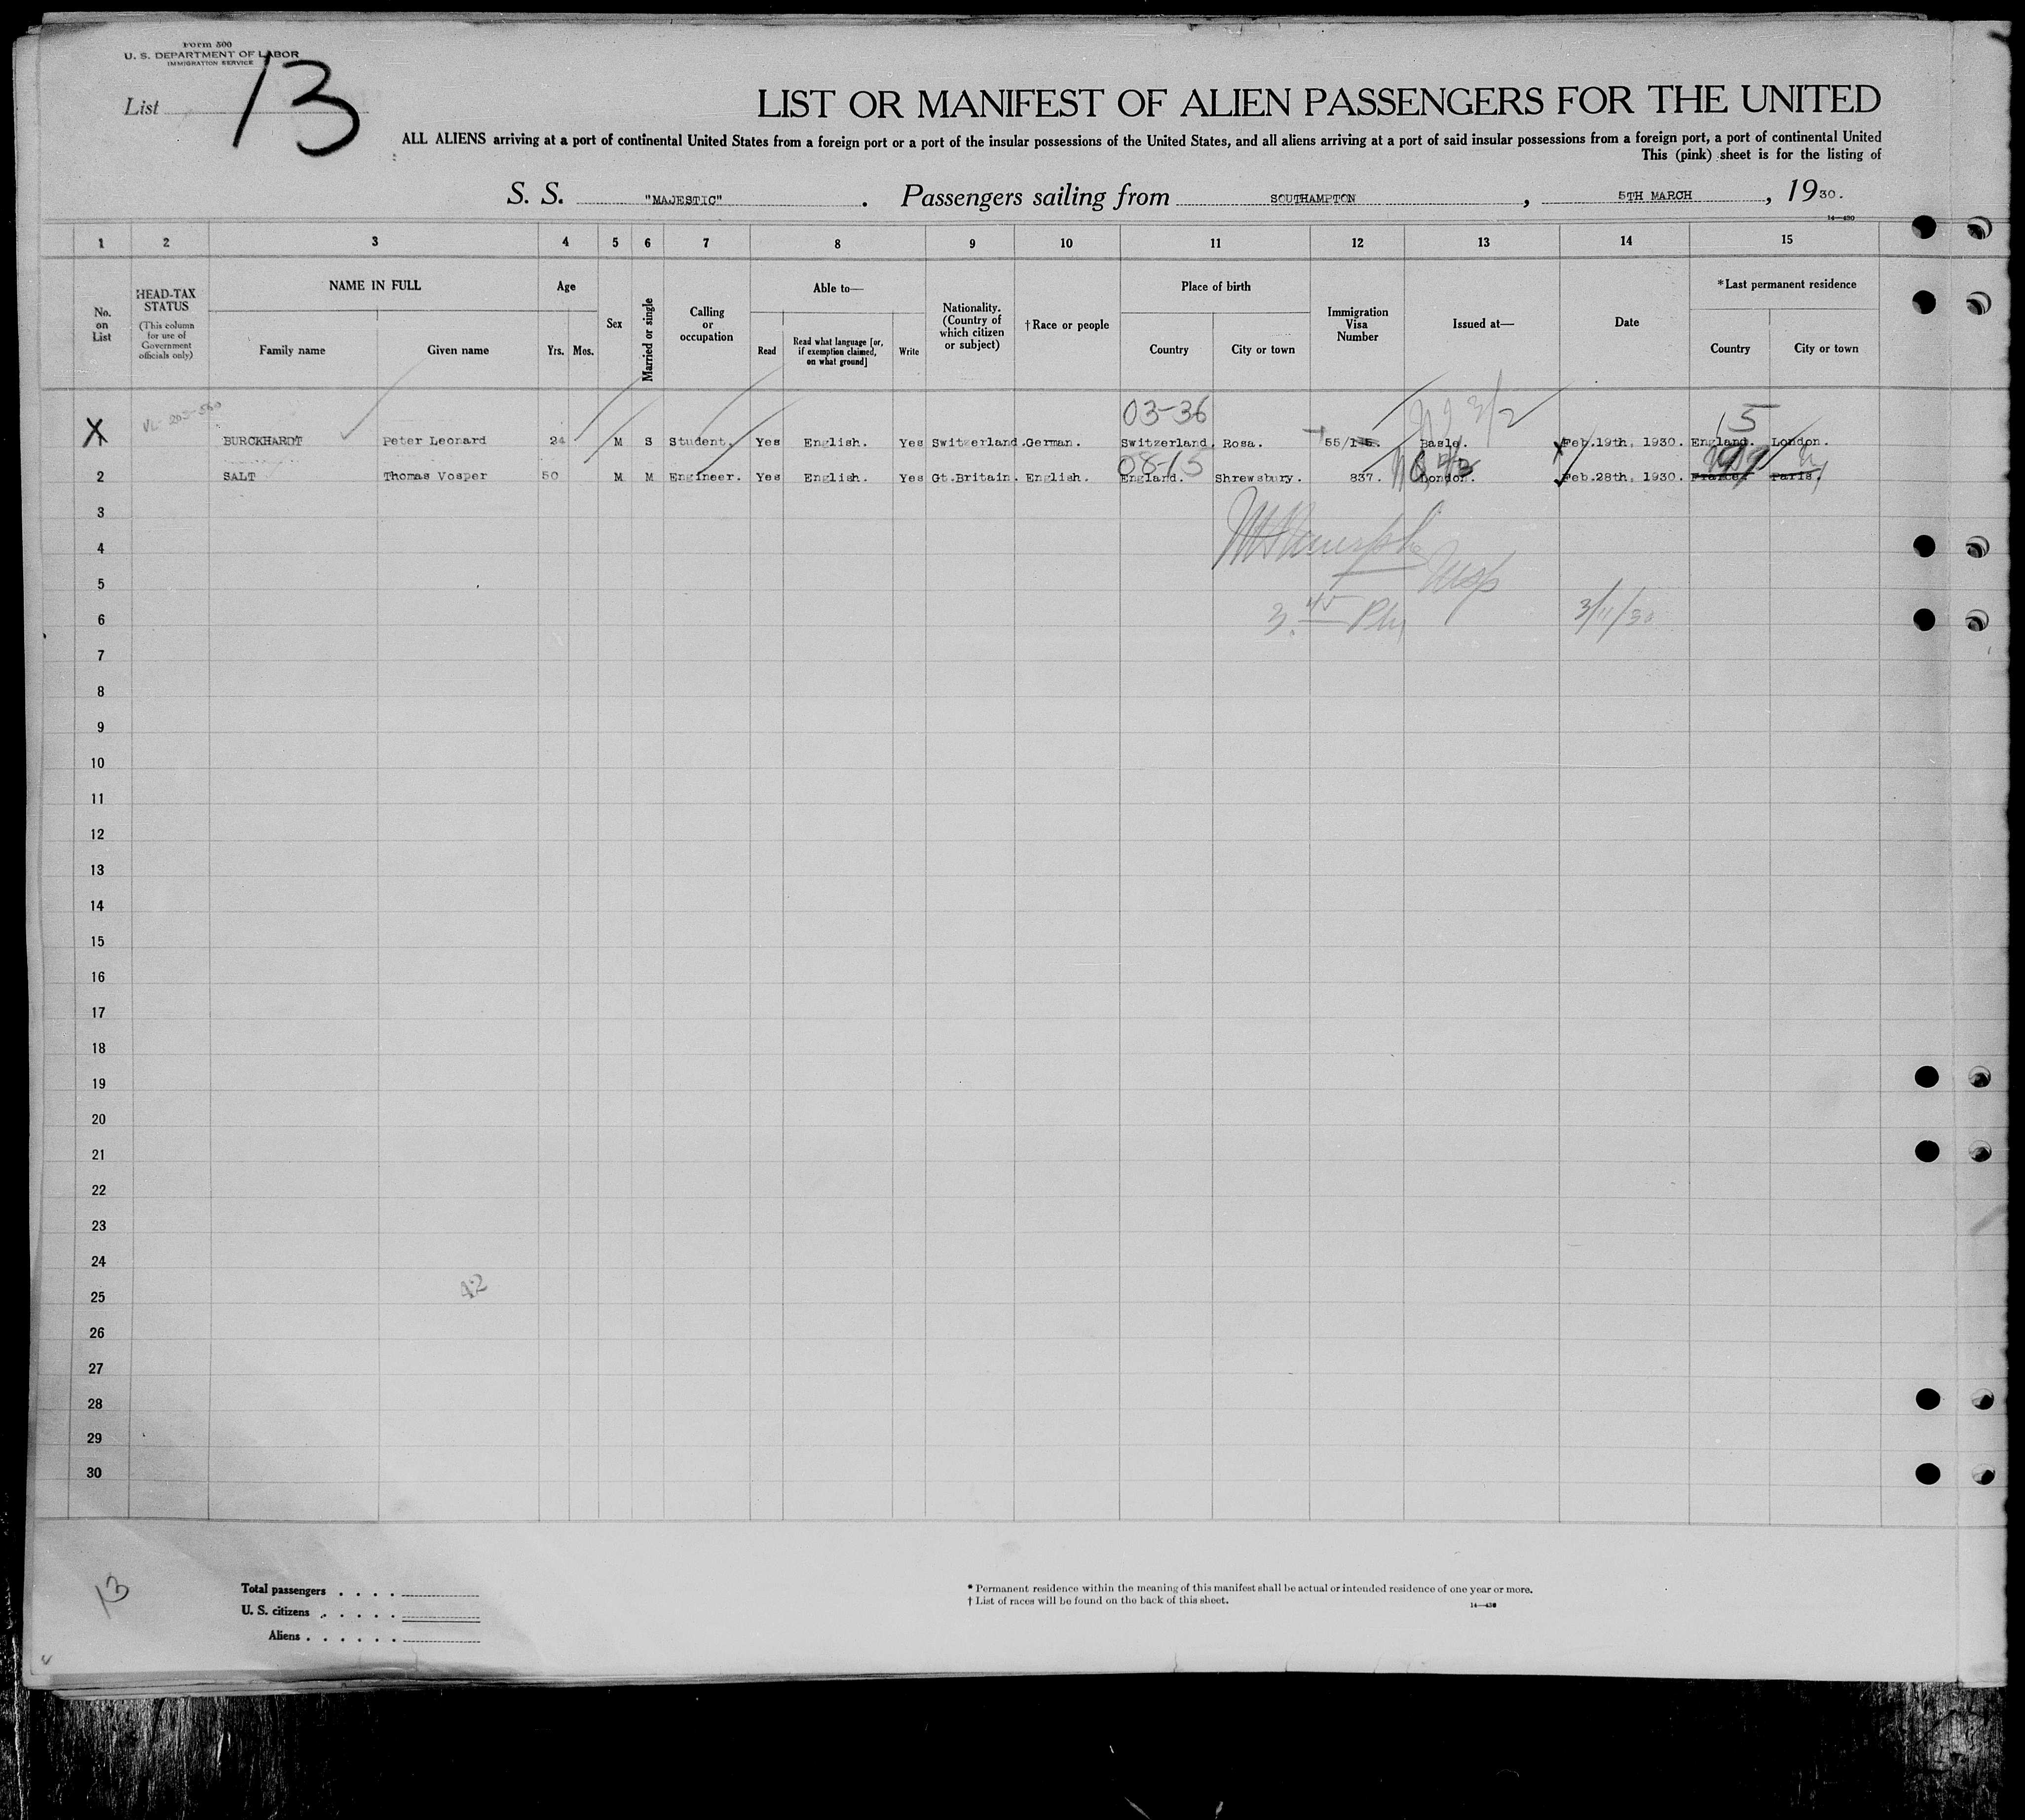 Form 500
U. S. DEPARTMENT OF LABOR
IMMIGRATION SERVICE
List 13
LIST OR MANIFEST OF ALIEN PASSENGERS FOR THE UNITED
ALL ALIENS arriving at a port of continental United States from a foreign port or a port of the insular possessions of the United States, and all aliens arriving at a port of said insular possessions from a foreign port, a port of continental United
This (pink) sheet is for the listing of
S. S. "MAJESTIC" . Passengers sailing from SOUTHAMPTON , 5TH MARCH , 1930.
14—430
1 2 3 4 5 6 7 8 9 10 11 12 13 14 15
No. on List
HEAD-TAX STATUS
(This column for use of Government officials only)
NAME IN FULL
Family name
Given name
Age
Yrs. Mos.
Sex
Married or single
Calling or occupation
Able to—
Read
Read what language [or, if exemption claimed, on what ground]
Write
Nationality. (Country of which citizen or subject)
† Race or people
Place of birth
Country
City or town
Immigration Visa Number
Issued at—
Date
*Last permanent residence
Country
City or town
03-36
3/2
15
X BURCKHARDT Peter Leonard 24 M S Student. Yes English. Yes Switzerland. German. Switzerland. Rosa. 55/15. Basle. Feb.19th, 1930. England. London.
08-15
2 SALT Thomas Vosper 50 M M Engineer. Yes English. Yes Gt.Britain. English. England. Shrewsbury. 837. London. Feb.28th, 1930. France. Paris.
3
4
5
6 3.45 PM 3/11/30
7
8
9
10
11
12
13
14
15
16
17
18
19
20
21
22
23
24
42
25
26
27
28
29
30
13
Total passengers . . . .
U. S. citizens . . . . .
Aliens . . . . . .
* Permanent residence within the meaning of this manifest shall be actual or intended residence of one year or more.
† List of races will be found on the back of this sheet.
14—430